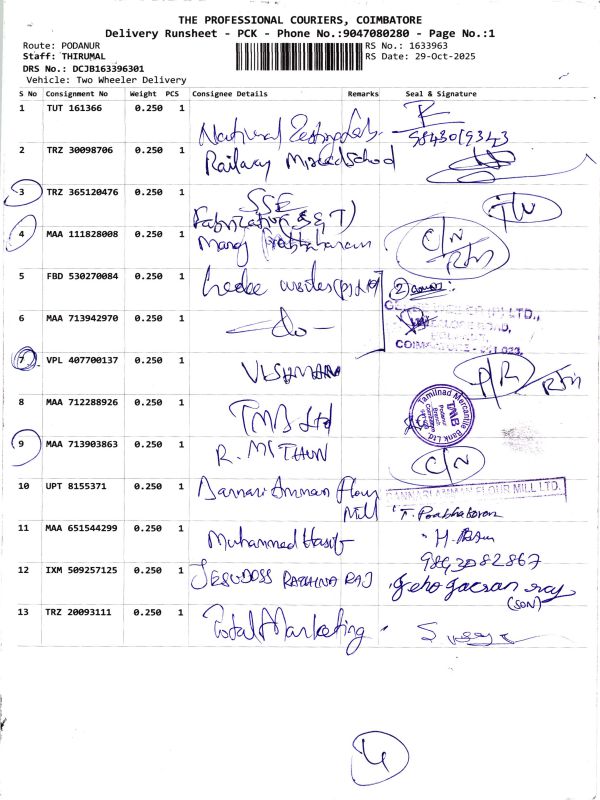 THE PROFESSIONAL COURIERS, COIMBATORE
Delivery Runsheet - PCK - Phone No.:9047080280 - Page No.:1
Route: PODANUR RS No.: 1633963
Staff: THIRUMAL RS Date: 29-Oct-2025
DRS No.: DCJB163396301
Vehicle: Two Wheeler Delivery
S No Consignment No Weight PCS Consignee Details Remarks Seal & Signature
1 TUT 161366 0.250 1
National Testing Lab. 9843019343
2 TRZ 30098706 0.250 1
Railway Mixed School
3 TRZ 365120476 0.250 1 SSE
Fabrication (S&T)
4 MAA 111828008 0.250 1 C/N
Manoj Prabhaharan Rtn
5 FBD 530270084 0.250 1 (P) Ltd 2
LTD.,
6 MAA 713942970 0.250 1 -do-
ROAD,
COIMBATORE
7 VPL 407700137 0.250 1 Rtn
8 MAA 712288926 0.250 1 TMB Ltd Tamilnad Mercantile Bank Ltd. TMB Podanur Branch Coimbatore
9 MAA 713903863 0.250 1
R. MITHUN C/N
10 UPT 8155371 0.250 1 Bannari Amman Flour Mill BANNARI AMMAN FLOUR MILL LTD.
T. Prabhakaran
11 MAA 651544299 0.250 1
Muhammed Hasif H.
12 IXM 509257125 0.250 1 9893082867
JESUDOSS RAJ Jeho Jacson raj
(SON)
13 TRZ 20093111 0.250 1
Total Marketing S
4